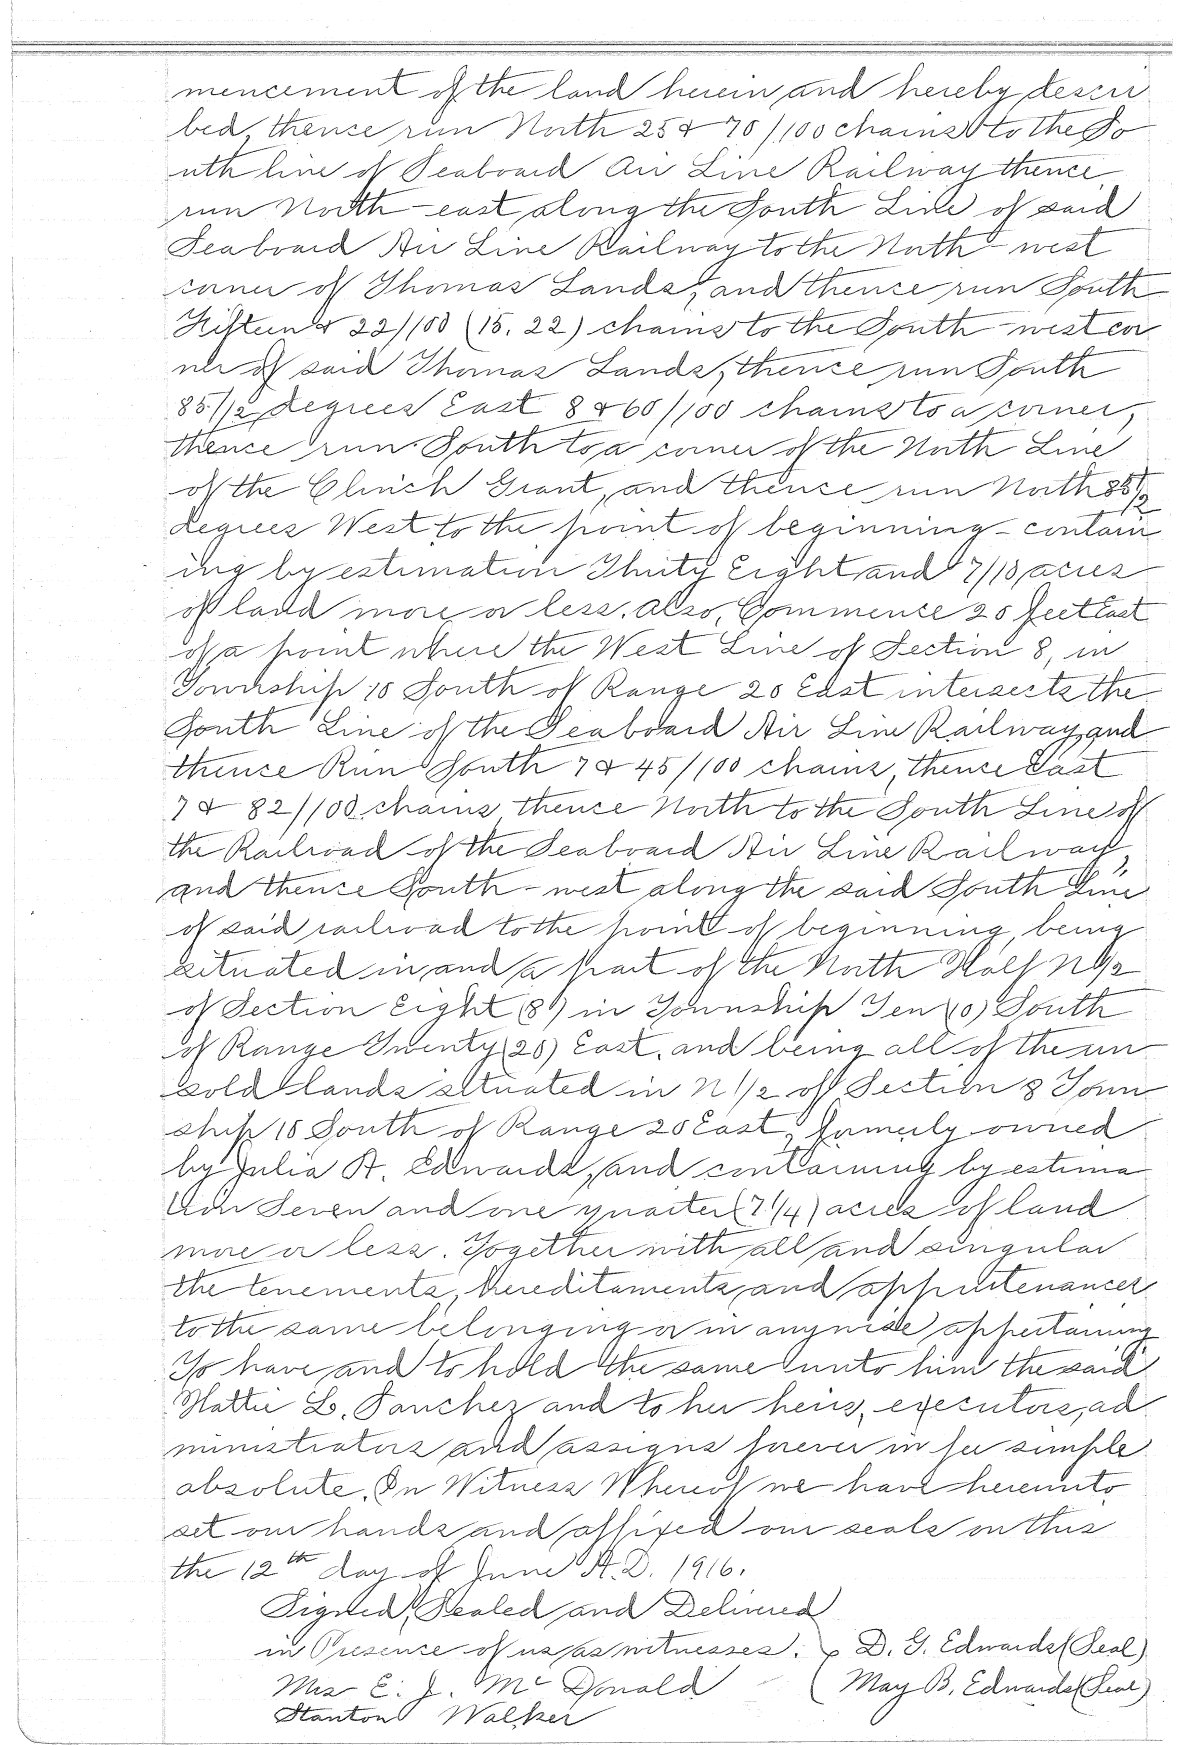 mencement of the land herein and hereby descri
bed, thence run North 25 & 70/100 chains to the So
uth line of Seaboard Air Line Railway thence
run North-east along the South Line of said
Seaboard Air Line Railway to the North-west
corner of Thomas Lands, and thence run South
Fifteen & 22/100 (15.22) chains to the South-west cor
ner of said Thomas Lands, thence run South
85 1/2 degrees East 8 & 60/100 chains to a corner,
thence run South to a corner of the North Line
of the Clinch Grant, and thence run North 85 1/2
degrees West to the point of beginning - contain
ing by estimation Thirty Eight and 7/10 acres
of land more or less. Also, Commence 20 feet East
of a point where the West Line of Section 8, in
Township 10 South of Range 20 East intersects the
South Line of the Seaboard Air Line Railway, and
thence Run South 7 & 45/100 chains, thence East
7 & 82/100 chains, thence North to the South Line of
the Railroad of the Seaboard Air Line Railway,
and thence South-west along the said South Line
of said railroad to the point of beginning, being
situated in and a part of the North Half N 1/2
of Section Eight (8) in Township Ten (10) South
of Range Twenty (20) East, and being all of the un
sold lands situated in N 1/2 of Section 8 Town
ship 10 South of Range 20 East, formerly owned
by Julia A. Edwards, and containing by estima
tion Seven and one quarter (7 1/4) acres of land
more or less. Together with all and singular
the tenements, hereditaments and appurtenances
to the same belonging or in anywise appertaining
To have and to hold the same unto him the said
Hattie L. Sanchez and to her heirs, executors, ad
ministrators and assigns forever in fee simple
absolute. In Witness Whereof we have hereunto
set our hands and affixed our seals on this
the 12th day of June A.D. 1916.
Signed, Sealed and Delivered
in Presence of us as witnesses. D. G. Edwards (Seal)
Mrs E. J. McDonald May B. Edwards (Seal)
Stanton Walker